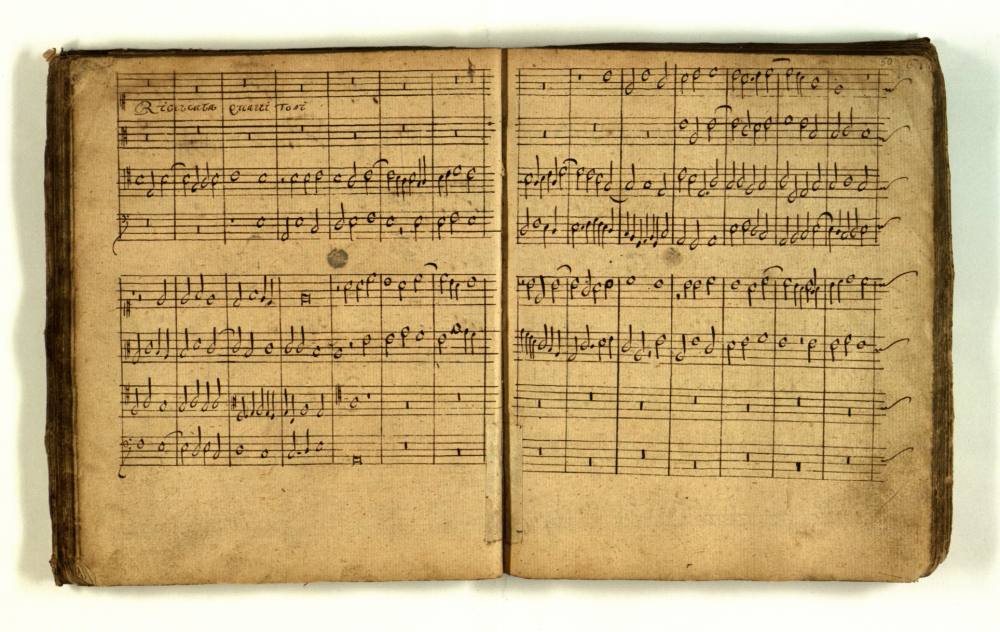 50
Ricercata quarti toni